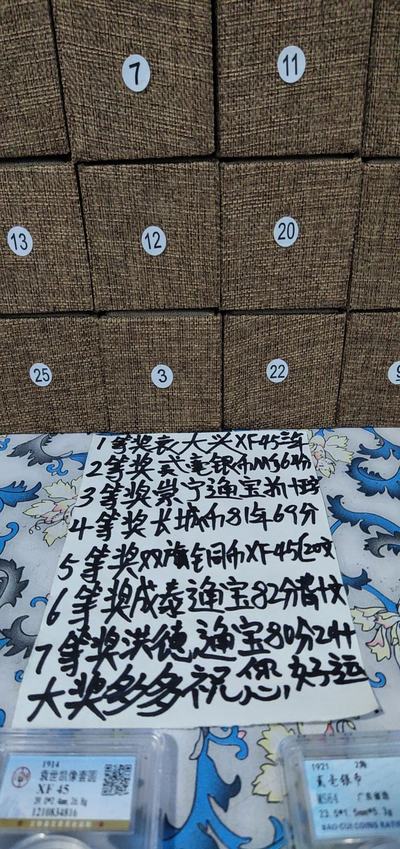 7
11
13
12
20
25
3
22
9
1等奖袁大头XF45三年
2等奖贰毫银币MS64分
3等奖崇宁通宝折十
4等奖长城币81年69分
5等奖双旗铜币XF45(20文
6等奖咸泰通宝82分背十
7等奖洪德通宝80分24
大奖多多祝您,好运
1914
袁世凯像壹圆
XF 45
1210834816
1921
贰毫银币
MS64
广东省造
23.5*1.5mm*5.3g